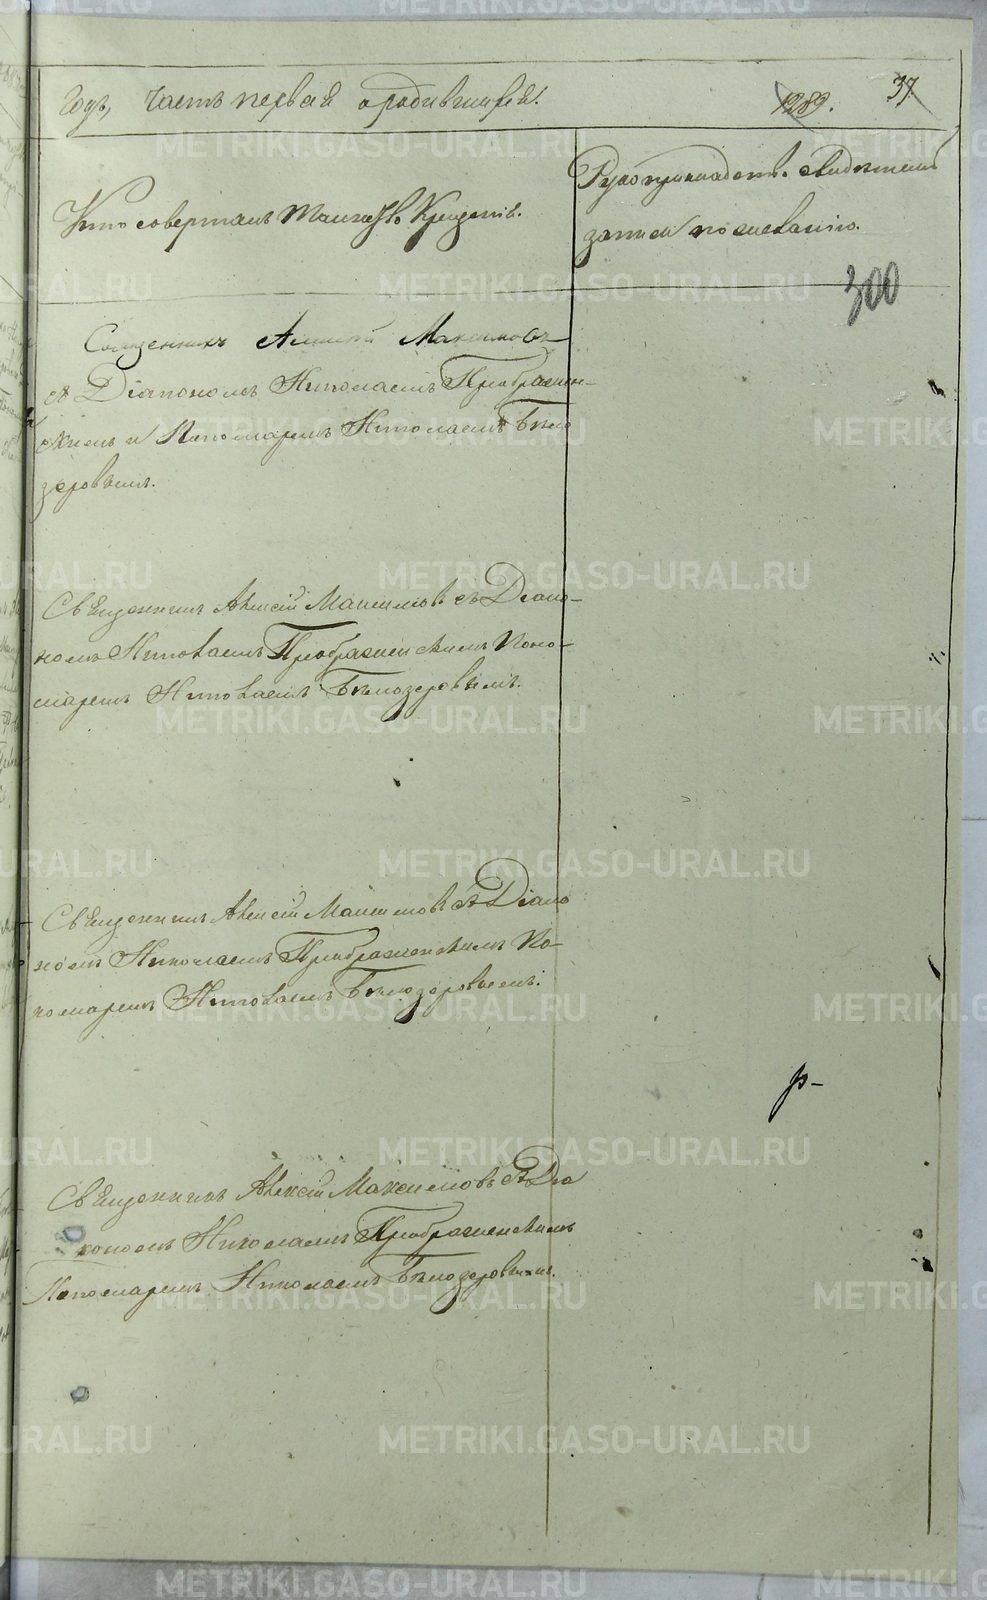 Годъ, часть первая о родившихся.
1289.
37
Кто совершалъ Таинство Крещенія.
Рукоприкладств. свидѣтелей
записи по желанію.
300
Священникъ Алексѣй Максимовъ
съ Діакономъ Николаемъ Преображен-
скимъ и Пономаремъ Николаемъ Бѣло
зеровымъ.
Священникъ Алексѣй Максимовъ съ Діако-
номъ Николаемъ Преображенскимъ Поно-
маремъ Николаемъ Бѣлозеровымъ.
Священникъ Алексѣй Максимовъ съ Діако
номъ Николаемъ Преображенскимъ По-
номаремъ Николаемъ Бѣлозеровымъ.
р-
Священникъ Алексѣй Максимовъ съ Діа
кономъ Николаемъ Преображенскимъ
Пономаремъ Николаемъ Бѣлозеровымъ.
METRIKI.GASO-URAL.RU